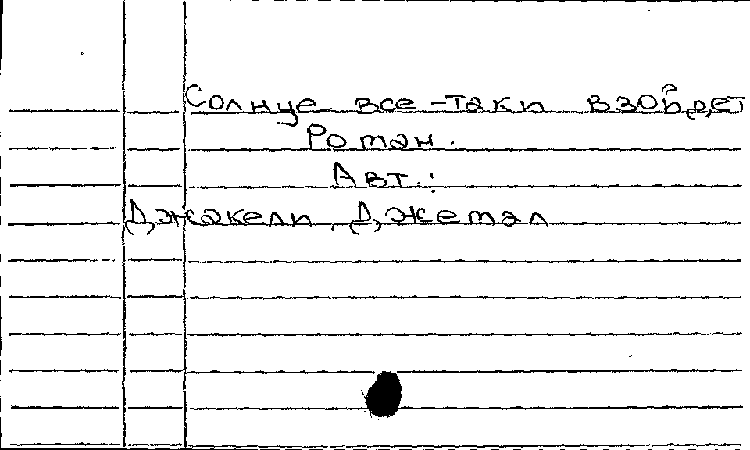 Солнце все-таки взойдет
Роман.
Авт.:
Джакели, Джемал